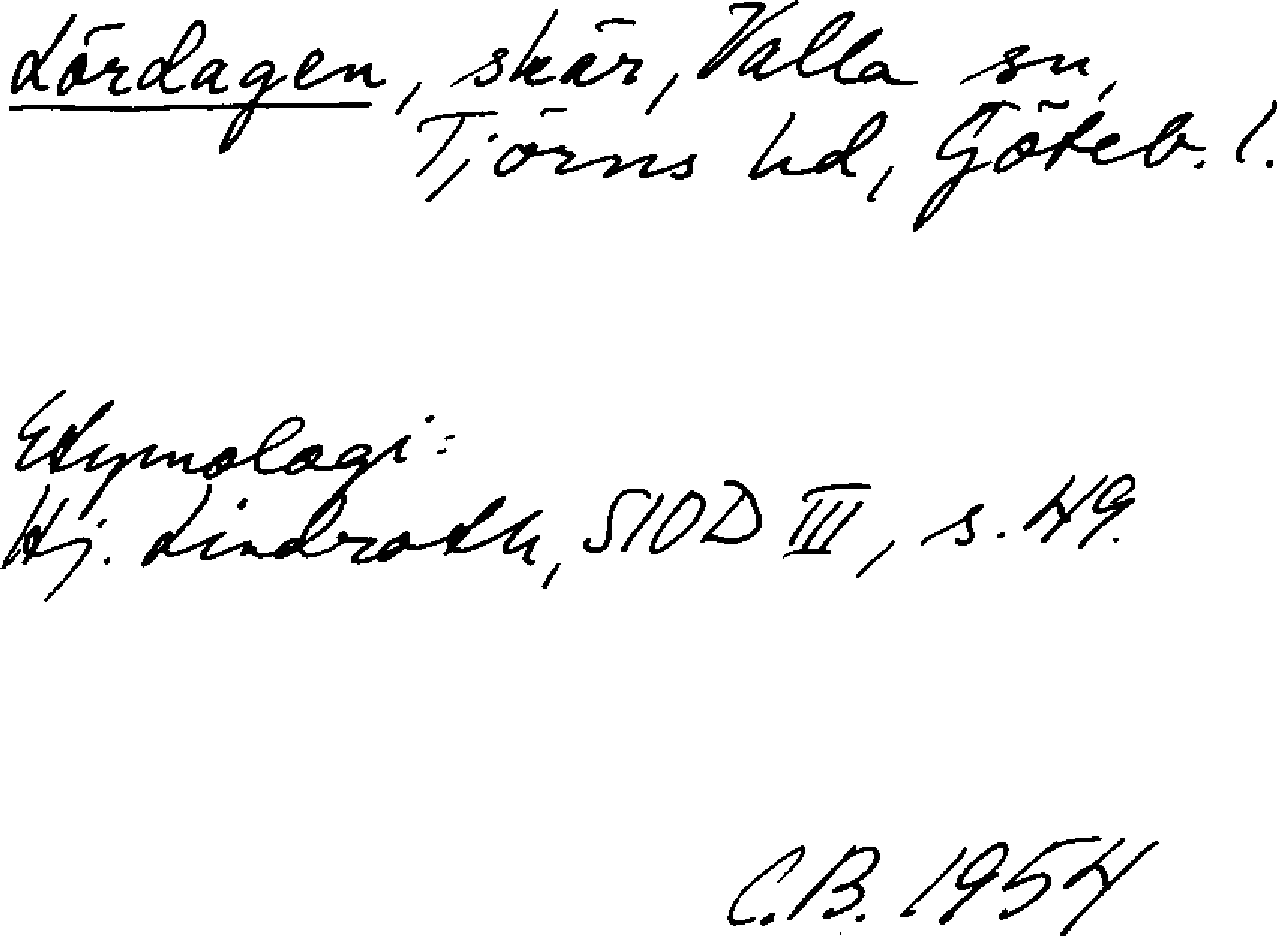 Lördagen, skär, Valla sn,
Tjörns hd, Göteb. l.
Etymologi:
Hj. Lindroth, SIOD III, s. 49.
C.B. 1954